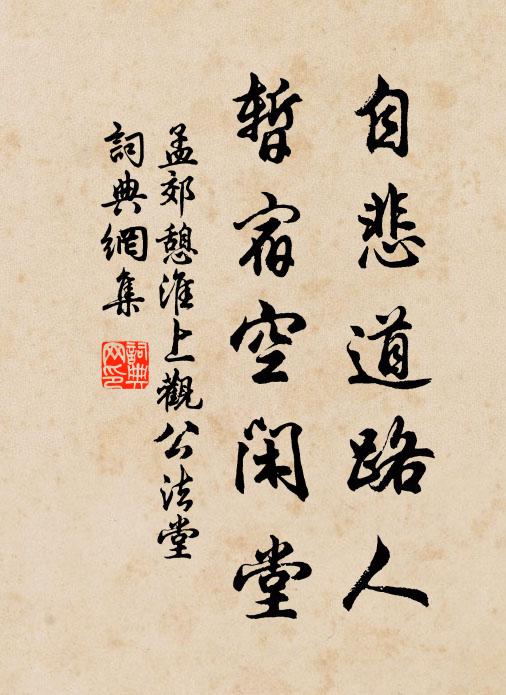 自悲道路人
暫宿空閑堂
孟郊憩淮上觀公法堂
詞典網集
詞典網印